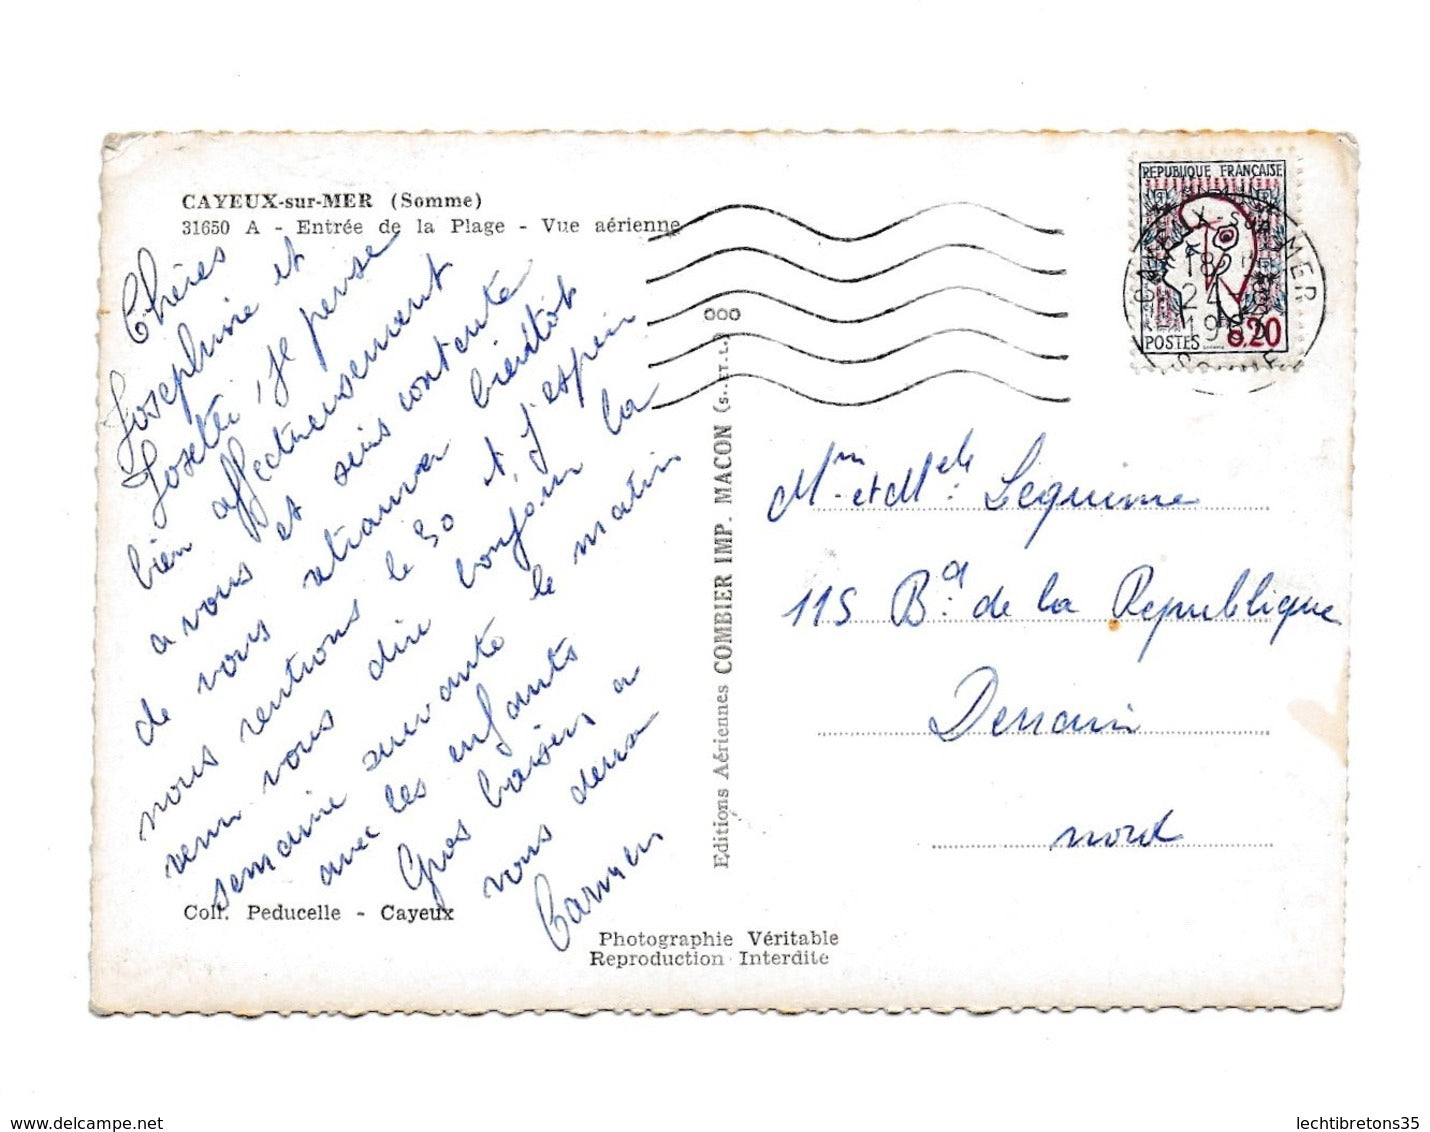 CAYEUX-sur-MER (Somme)
31650 A - Entrée de la Plage - Vue aérienne
Chères
Josephine et
Josette, je pense
bien affectueusement
a vous et suis contente
de vous retrouver bientôt
nous rentrons le 30 et j'espère
venir vous dire bonjour la
semaine suivante le matin
avec les enfants
Gros baisers a
vous deux
Carmen
Coll. Peducelle - Cayeux
Photographie Véritable
Reproduction Interdite
Editions Aériennes COMBIER IMP. MACON (S.-ET-L.)
REPUBLIQUE FRANÇAISE
POSTES 0,20
CAYEUX-SUR-MER
18H
24-8
SOMME
Mm et Mele Lequime
115 Bd de la Republique
Denain
nord
delcampe.net
lechtibretons35